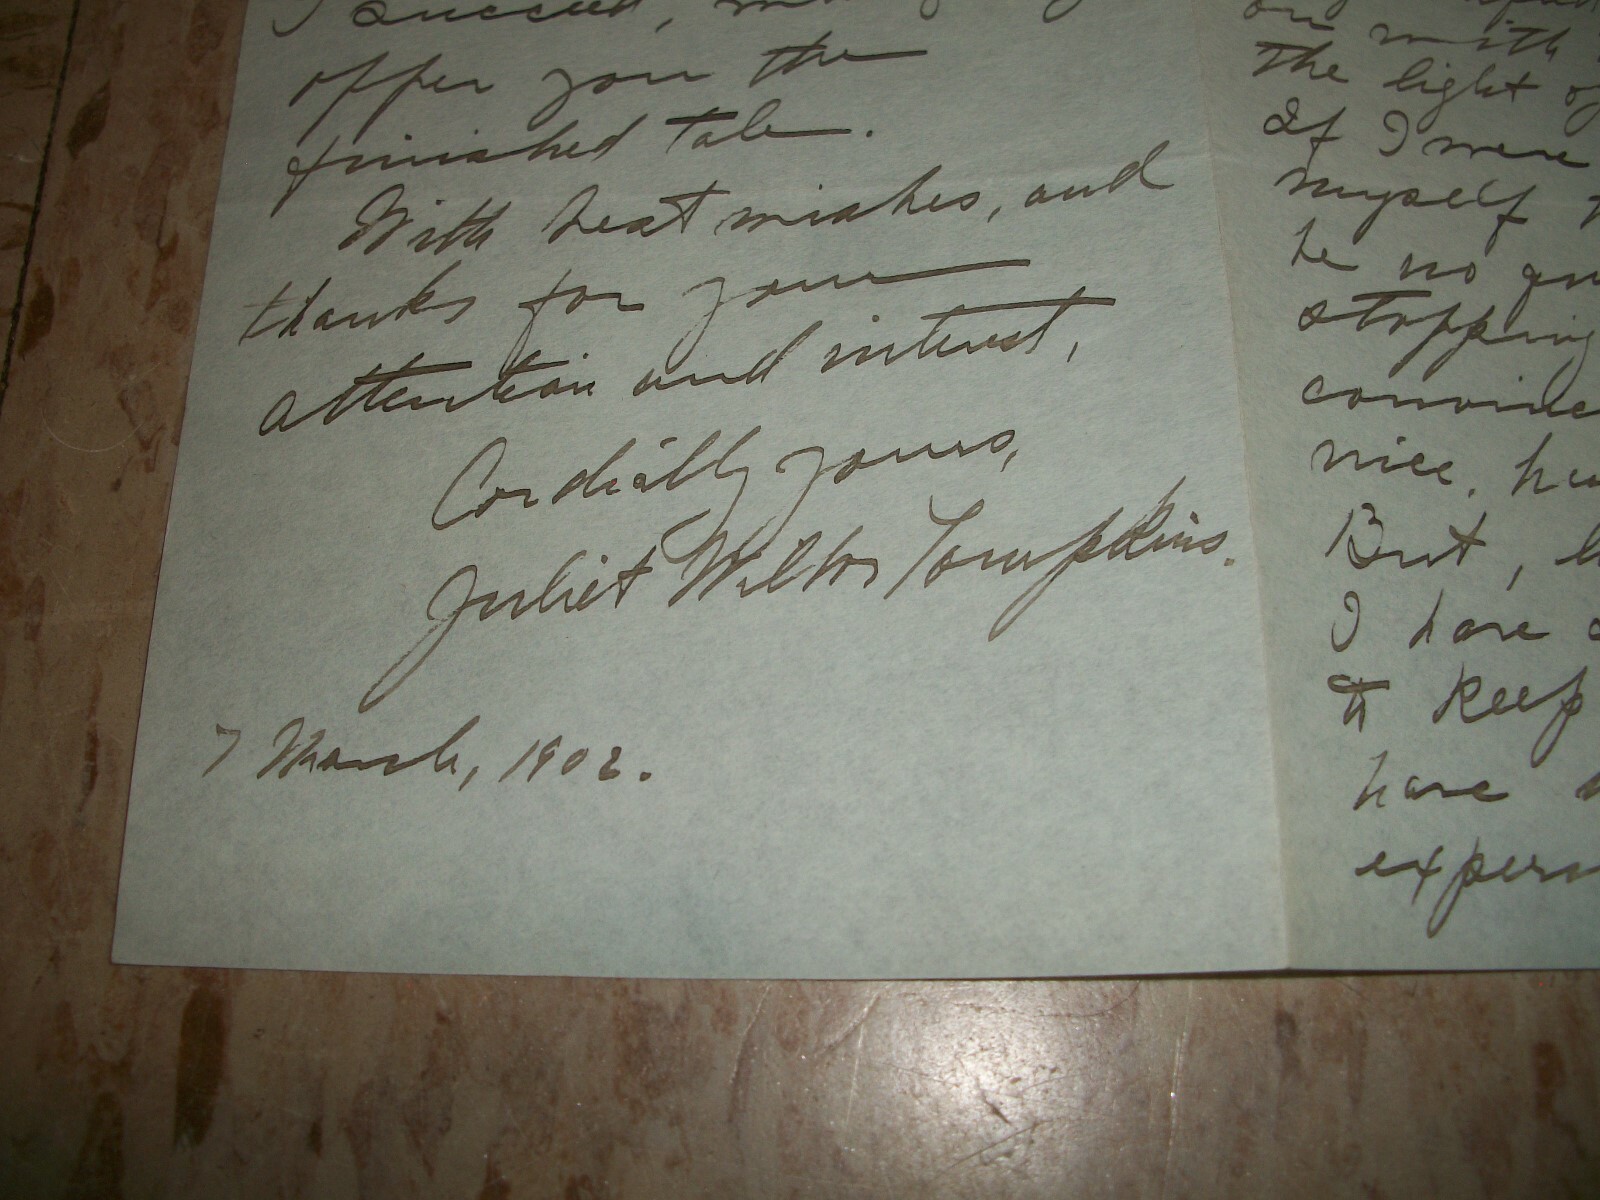 I succeed,
offer you the
finished tale.
With best wishes, and
thanks for your
attention and interest,
Cordially yours,
Juliet Wilbor Tompkins.
7 March, 1902.
on with
the light of
If I were
myself
be no
stopping
nice,
But,
I have
to keep
have